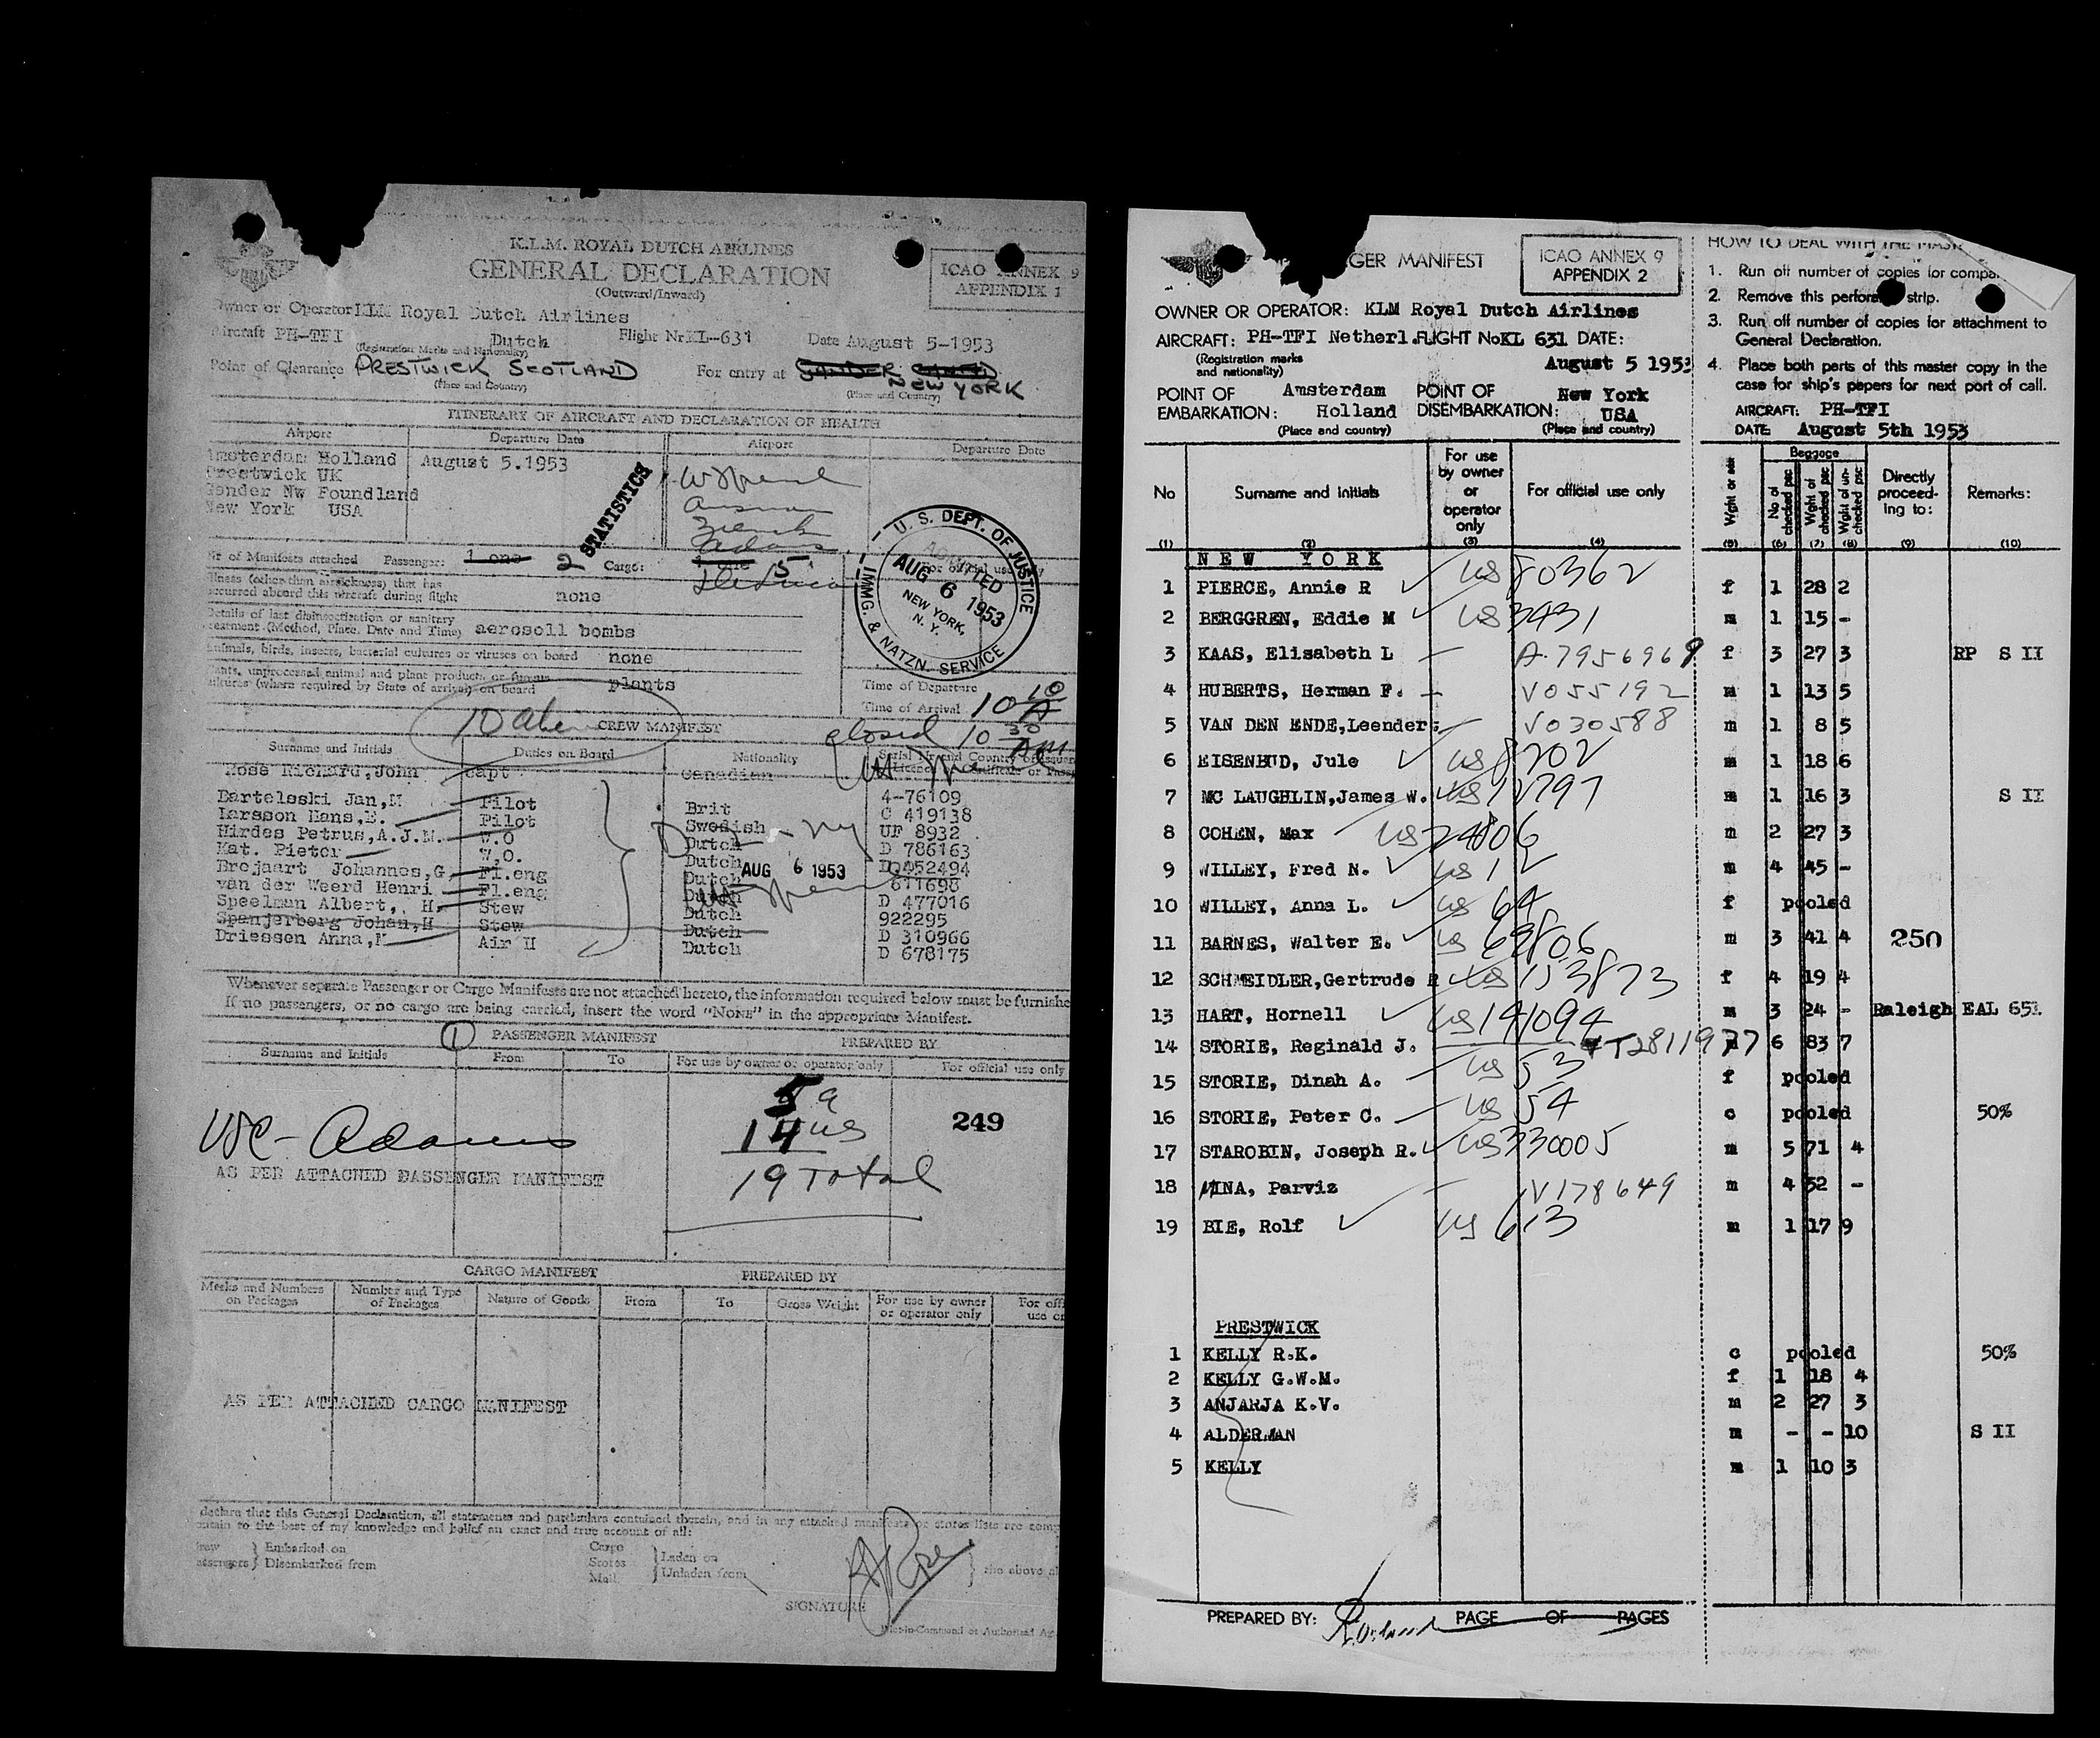 K.L.M. ROYAL DUTCH AIRLINES
GENERAL DECLARATION
(Outward/Inward)
ICAO ANNEX 9
APPENDIX 1
Owner or Operator KLM Royal Dutch Airlines
Aircraft PH-TFI Dutch Flight Nr KL-631 Date August 5-1953
(Registration Marks and Nationality)
Point of Clearance PRESTWICK SCOTLAND For entry at NEW YORK
(Place and Country) (Place and Country)
ITINERARY OF AIRCRAFT AND DECLARATION OF HEALTH
Airport Departure Date Airport Departure Date
Amsterdam Holland August 5.1953
Prestwick UK
Gander Nw Foundland
New York USA
STATISTICS
Nr of Manifests attached Passenger: 1 one 2 Cargo: 5
For official use only
Illness (other than airsickness) that has
occurred aboard this aircraft during flight none
Details of last disinsectization or sanitary
treatment (Method, Place, Date and Time) aerosoll bombs
Animals, birds, insects, bacterial cultures or viruses on board none
Plants, unprocessed animal and plant products or fungus
cultures (where required by State of arrival) on board plants
U. S. DEPT. OF JUSTICE
ADMITTED
AUG 6 1953
NEW YORK, N. Y.
IMMG. & NATZN. SERVICE
Time of Departure
Time of Arrival 10 10 A
closed 10 30 AM
CREW MANIFEST
Surname and Initials Duties on Board Nationality
Rose Richard,John Capt Canadian 4-76109
Bartelsski Jan,M Pilot Brit C 419138
Larsson Hans,E. Pilot Swedish UF 8932
Hirdes Petrus,A.J.M. W.O Dutch D 786163
Kat. Pieter W.O. Dutch D 052494
Brejaart Johannes,G. Fl.eng Dutch 611698
van der Weerd Henri Fl.eng Dutch D 477016
Speelman Albert,. H. Stew Dutch 922295
Spanjerberg Johan,H Stew Dutch D 310966
Driessen Anna,M Air H Dutch D 678175
AUG 6 1953
Whenever separate Passenger or Cargo Manifests are not attached hereto, the information required below must be furnishe
If no passengers, or no cargo are being carried, insert the word "NONE" in the appropriate Manifest.
1 PASSENGER MANIFEST PREPARED BY
Surname and Initials From To For use by owner or operator only For official use only
5 a
14 us
19 Total
249
Adams
AS PER ATTACHED PASSENGER MANIFEST
CARGO MANIFEST PREPARED BY
Marks and Numbers on Packages Number and Type of Packages Nature of Goods From To Gross Weight For use by owner or operator only
AS PER ATTACHED CARGO MANIFEST
declare that this General Declaration, all statements and particulars contained therein, and in any attached manifests or stores lists are comp
ertain to the best of my knowledge and belief an exact and true account of all:
Crew } Embarked on Cargo
Passengers } Disembarked from Stores } Laden on the above
Mail } Unladen from
SIGNATURE
Pilot-in-Command or Authorized Ag
GER MANIFEST
ICAO ANNEX 9
APPENDIX 2
OWNER OR OPERATOR: KLM Royal Dutch Airlines
AIRCRAFT: PH-TFI Netherl. FLIGHT No KL 631 DATE:
(Registration marks and nationality) August 5 1953
POINT OF EMBARKATION: Amsterdam Holland POINT OF DISEMBARKATION: New York USA
(Place and country) (Place and country)
HOW TO DEAL WITH THE MAS
1. Run off number of copies for compa
2. Remove this perfora strip.
3. Run off number of copies for attachment to
General Declaration.
4. Place both parts of this master copy in the
case for ship's papers for next port of call.
AIRCRAFT: PH-TFI
DATE August 5th 1953
No Surname and initials For use by owner or operator only For official use only Baggage No of checked pac Wght of checked pac Wght of un-checked pac Directly proceed-ing to: Remarks:
(1) (2) (3) (4) (5) (6) (7) (8) (9) (10)
NEW YORK
1 PIERCE, Annie R us 80362 f 1 28 2
2 BERGGREN, Eddie M us 3431 m 1 15 -
3 KAAS, Elisabeth L A-7956969 f 3 27 3 RP S II
4 HUBERTS, Herman F. V055192 m 1 13 5
5 VAN DEN ENDE,Leendert V030588 m 1 8 5
6 EISENBUD, Jule us 8202 m 1 18 6
7 MC LAUGHLIN,James W. us 12797 m 1 16 3 S II
8 COHEN, Max us 24806 m 2 27 3
9 WILLEY, Fred N. us 12 m 4 45 -
10 WILLEY, Anna L. us 64 f pooled
11 BARNES, Walter E. us 69806 m 3 41 4 250
12 SCHMEIDLER,Gertrude R us 153873 f 4 19 4
13 HART, Hornell us 141094 m 3 24 - Raleigh EAL 651
14 STORIE, Reginald J. T2811977 6 83 7
15 STORIE, Dinah A. us 53 f pooled
16 STORIE, Peter C. us 54 c pooled 50%
17 STAROBIN, Joseph R. us 330005 m 5 71 4
18 MINA, Parviz V178649 m 4 52 -
19 BIE, Rolf us 613 m 1 17 9
PRESTWICK
1 KELLY R.K. c pooled 50%
2 KELLY G.W.M. f 1 18 4
3 ANJARJA K.V. m 2 27 3
4 ALDERMAN m - - 10 S II
5 KELLY m 1 10 3
PREPARED BY: PAGE OF PAGES